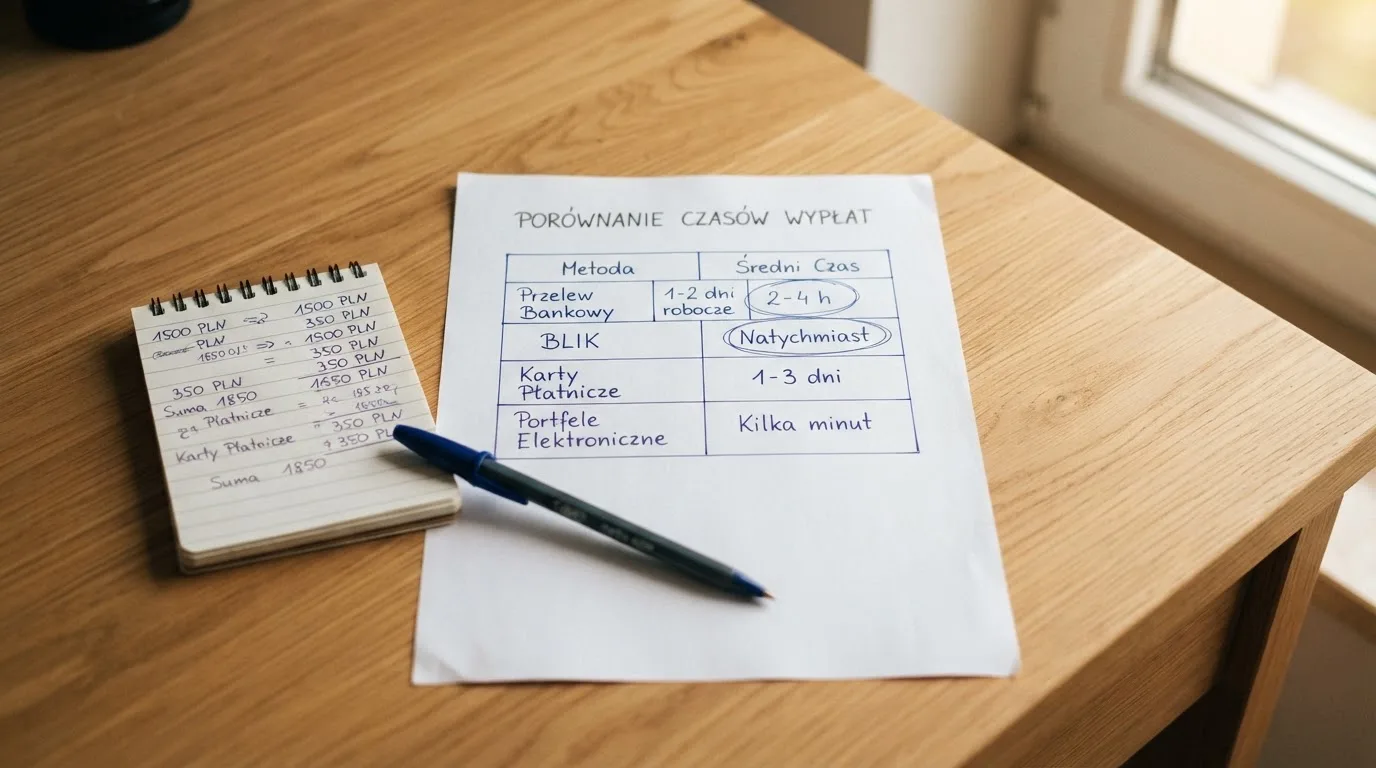 PORÓWNANIE CZASÓW WYPŁAT
Metoda Średni Czas
Przelew Bankowy 1-2 dni robocze 2-4 h
BLIK Natychmiast
Karty Płatnicze 1-3 dni
Portfele Elektroniczne Kilka minut
1500 PLN 1500 PLN
PLN 350 PLN
1500 PLN
= 350 PLN
350 PLN 350 PLN
Suma 1850 1650 PLN
Płatnicze =
Karty Płatnicze 350 PLN
Suma 1850